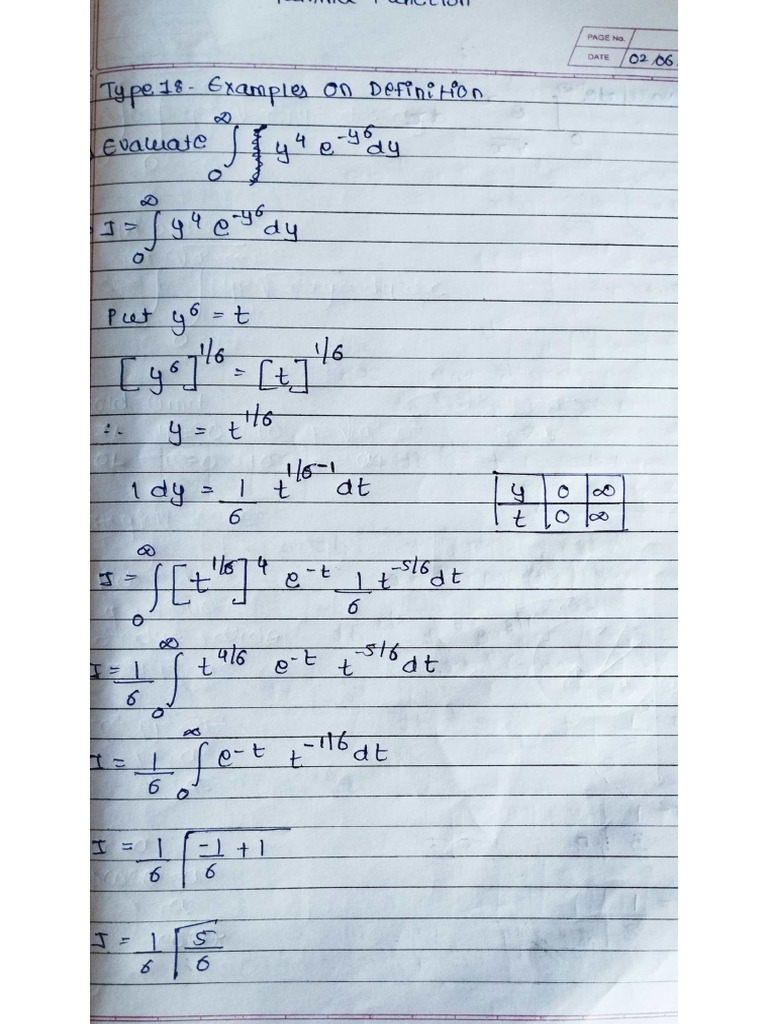 Function
PAGE No.
DATE 02.06.
Type 18 - Examples on Definition.
Evaluate ∫₀^∞ y⁴ e^(-y⁶) dy
I = ∫₀^∞ y⁴ e^(-y⁶) dy
Put y⁶ = t
[y⁶]^(1/6) = [t]^(1/6)
∴ y = t^(1/6)
1 dy = 1/6 t^(1/6-1) dt
y 0 ∞
t 0 ∞
I = ∫₀^∞ [t^(1/6)]⁴ e^(-t) 1/6 t^(-5/6) dt
I = 1/6 ∫₀^∞ t^(4/6) e^(-t) t^(-5/6) dt
I = 1/6 ∫₀^∞ e^(-t) t^(-1/6) dt
I = 1/6 Γ(-1/6 + 1)
I = 1/6 Γ(5/6)